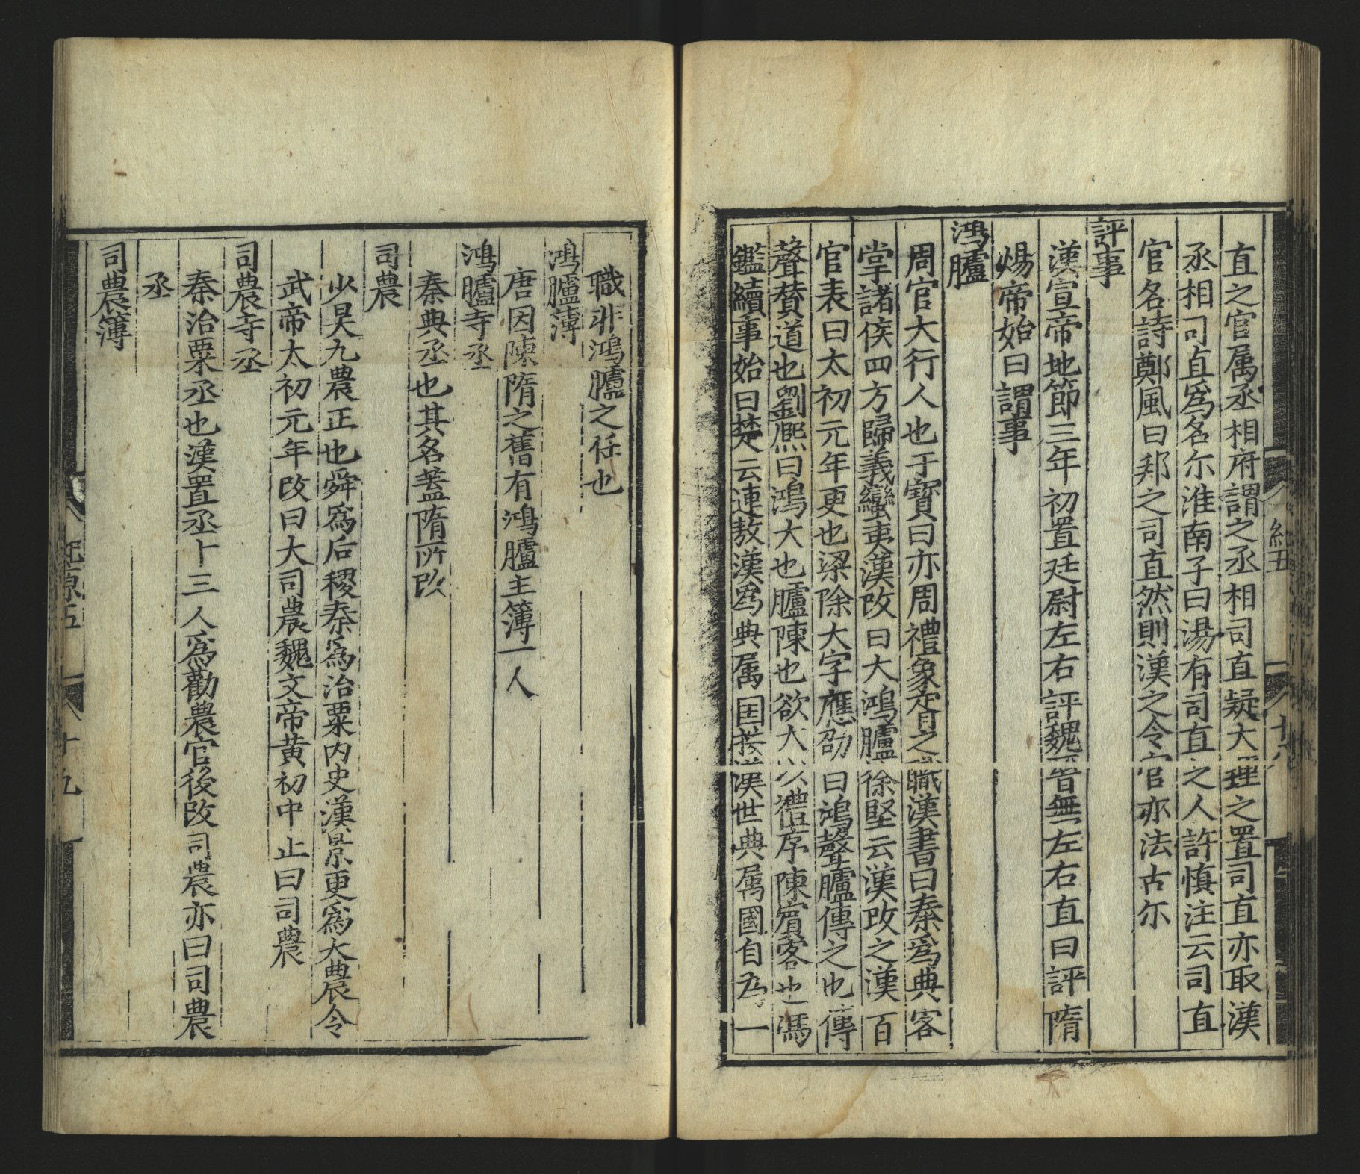 直之官属丞相府謂之丞相司直疑大理之置司直亦取漢
丞相司直爲名尔淮南子曰湯有司直之人許慎注云司直
官名詩鄭風曰邦之司直然則漢之令官亦法古尔
評事
漢宣帝地節三年初置廷尉左右評魏晋無左右直曰評隋
煬帝始曰謂事
鴻臚
周官大行人也于寳曰亦周禮象胥之職漢書曰秦爲典客
掌諸侯四方歸義蠻夷漢改曰大鴻臚徐堅云漢改之漢百
官表曰太初元年更也梁除大字應劭曰鴻聲臚傳之也傳
聲賛道也劉熈曰鴻大也臚陳也欲大以禮序陳賔客也馮
鑑續事始曰楚云連敖漢爲典属国漢世典属國自為一
職非鴻臚之任也
鴻臚薄
唐因陳隋之舊有鴻臚主簿一人
鴻臚寺丞
秦典丞也其名蓋隋所改
司農
少昊九農正也舜爲后稷秦爲治粟内史漢景更爲大農令
武帝太初元年改曰大司農魏文帝黄初中止曰司農
司農寺丞
秦治粟丞也漢置丞十三人爲勸農官後改司農亦曰司農
丞
司農薄
紀五
十八
十九